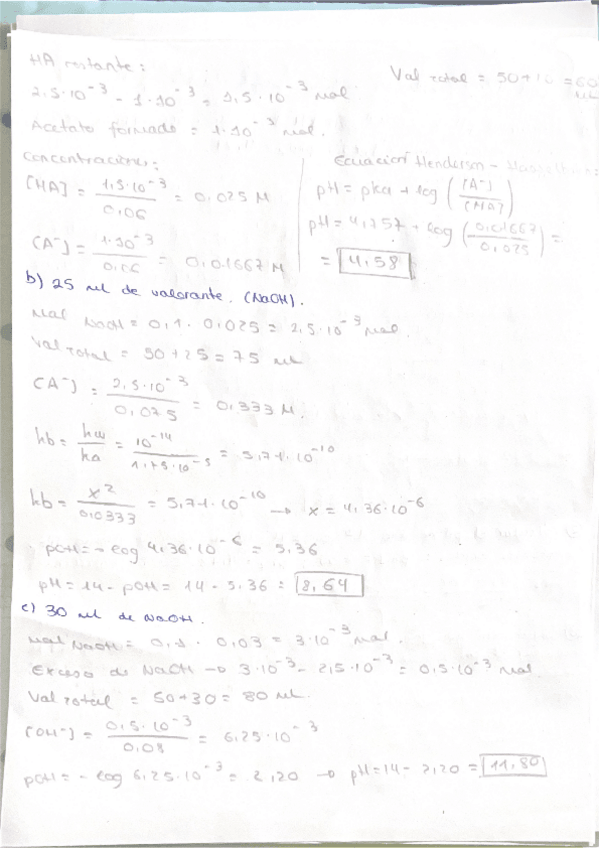 HA restante:
Vol total = 50+10 = 60 mL
2,5·10⁻³ - 1·10⁻³ = 1,5·10⁻³ mol
Acetato formado = 1·10⁻³ mol.
Concentraciones:
[HA] = 1,5·10⁻³ / 0,06 = 0,025 M
[A⁻] = 1·10⁻³ / 0,06 = 0,01667 M
Ecuación Henderson -
pH = pKa + log ([A⁻] / [HA])
pH = 4,757 + log (0,01667 / 0,025) =
= 4,58
b) 25 mL de valorante. (NaOH).
mol NaOH = 0,1 · 0,025 = 2,5·10⁻³ mol.
Vol total = 50 + 25 = 75 mL
[A⁻] = 2,5·10⁻³ / 0,075 = 0,333 M.
kb = kw / ka = 10⁻¹⁴ / 1,75·10⁻⁵ = 5,71·10⁻¹⁰
kb = x² / 0,0333 = 5,71·10⁻¹⁰ → x = 4,36·10⁻⁶
pOH = - log 4,36·10⁻⁶ = 5,36
pH = 14 - pOH = 14 - 5,36 = 8,64
c) 30 mL de NaOH.
mol NaOH = 0,1 · 0,03 = 3·10⁻³ mol.
Exceso de NaOH → 3·10⁻³ - 2,5·10⁻³ = 0,5·10⁻³ mol.
Vol total = 50+30 = 80 mL.
[OH⁻] = 0,5·10⁻³ / 0,08 = 6,25·10⁻³
pOH = - log 6,25·10⁻³ = 2,20 → pH = 14 - 2,20 = 11,80